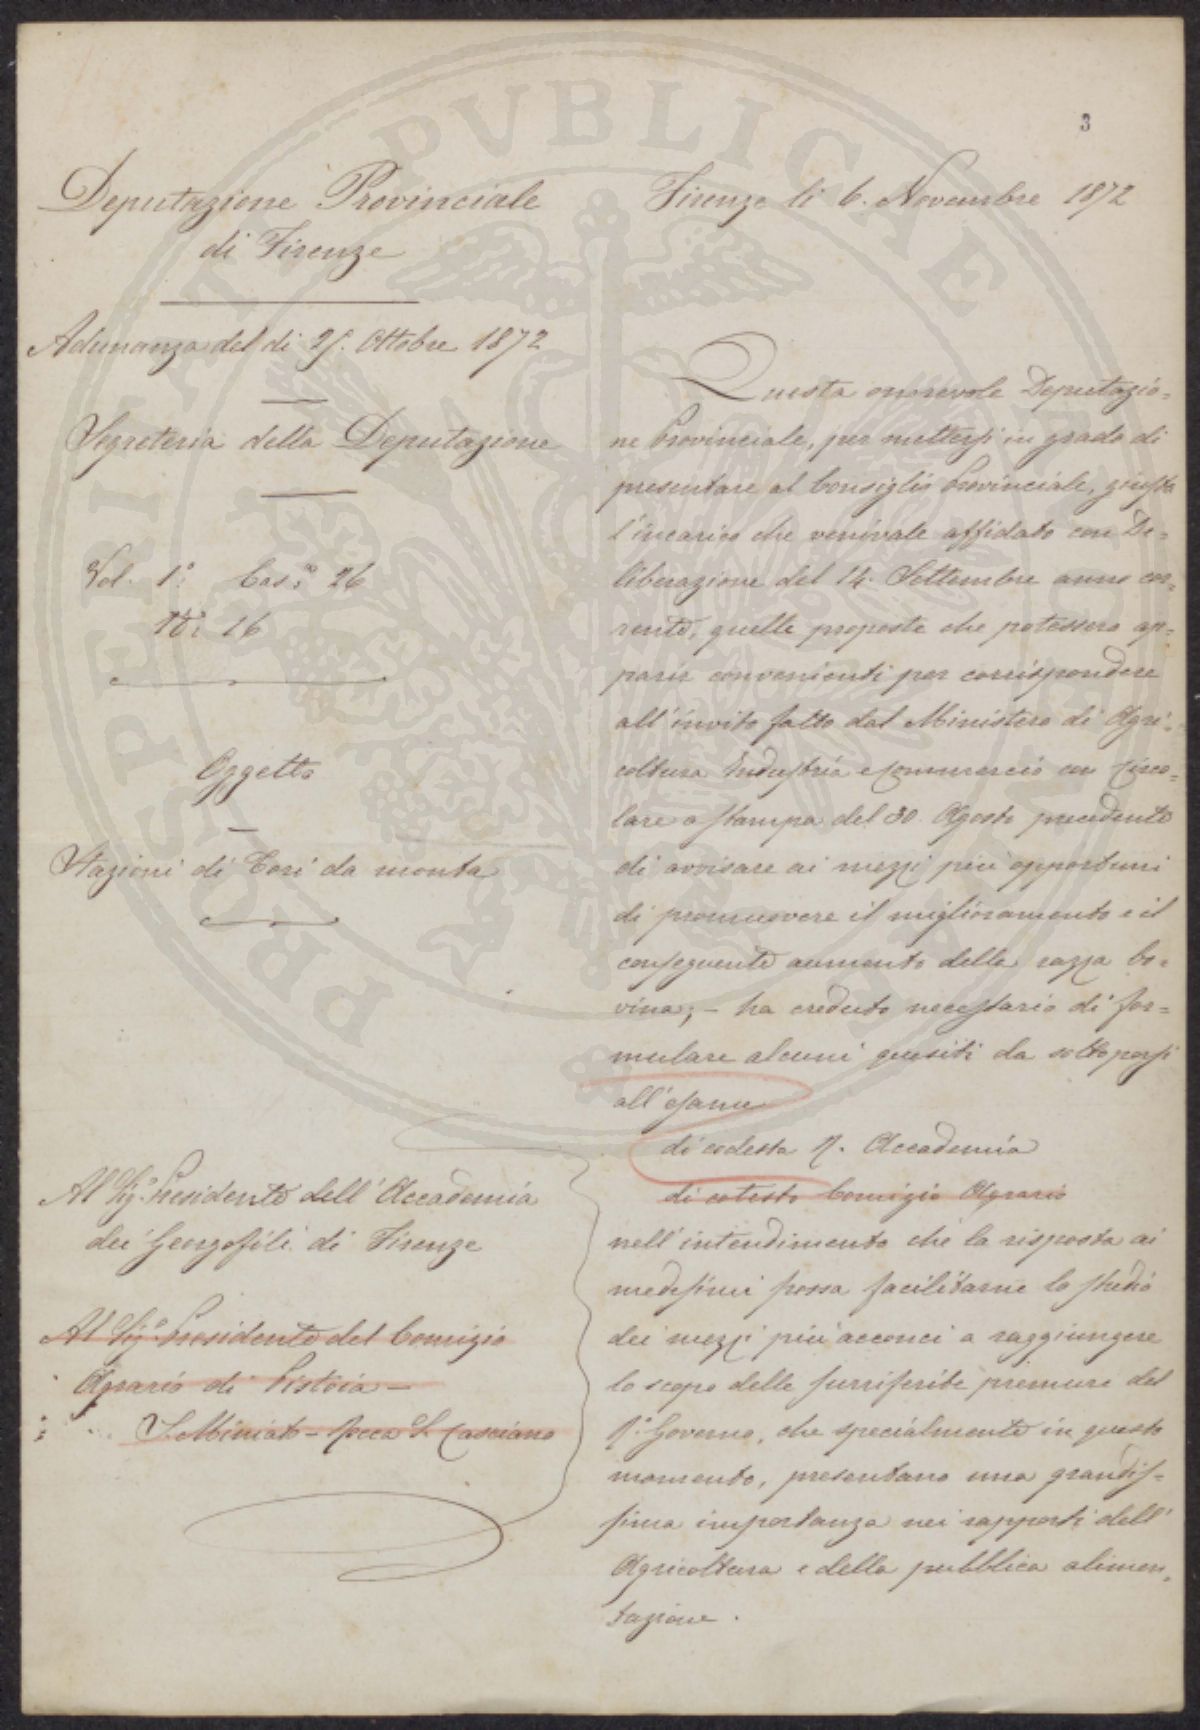 3
Deputazione Provinciale
di Firenze
Adunanza del dì 25. Ottobre 1872
Segreteria della Deputazione
Vol. 1º Cas.e 26
26
Oggetto
Stazioni di Tori da monta
Al Sig.r Presidente dell'Accademia
dei Georgofili di Firenze
Al Sig.r Presidente del Comizio
Agrario di Pistoia —
S. Miniato - Rocca S. Casciano
Firenze lì 6. Novembre 1872
Questa onorevole Deputazio=
ne Provinciale, per mettersi in grado di
presentare al Consiglio Provinciale, giusta
l'incarico che venivale affidato con De=
liberazione del 14. Settembre anno cor=
rente, quelle proposte che potessero ap=
parir convenienti per corrispondere
all'invito fatto dal Ministero di Agri=
coltura Industria e Commercio con Circo=
lare a stampa del 30 Agosto precedente
di avvisare ai mezzi più opportuni
di promuovere il miglioramento e il
conseguente aumento della razza bo=
vina; — ha creduto necessario di for=
mulare alcuni quesiti da sottoporsi
all'esame
di codesta R. Accademia
di cotesto Comizio Agrario
nell'intendimento che la risposta ai
medesimi possa facilitarne lo studio
dei mezzi più acconci a raggiungere
lo scopo delle surriferite premure del
R.º Governo, che specialmente in questo
momento, presentano una grandis=
sima importanza nei rapporti dell'
Agricoltura e della pubblica alimen=
tazione.
PROSPERITATI PUBLICAE AUGENDAE